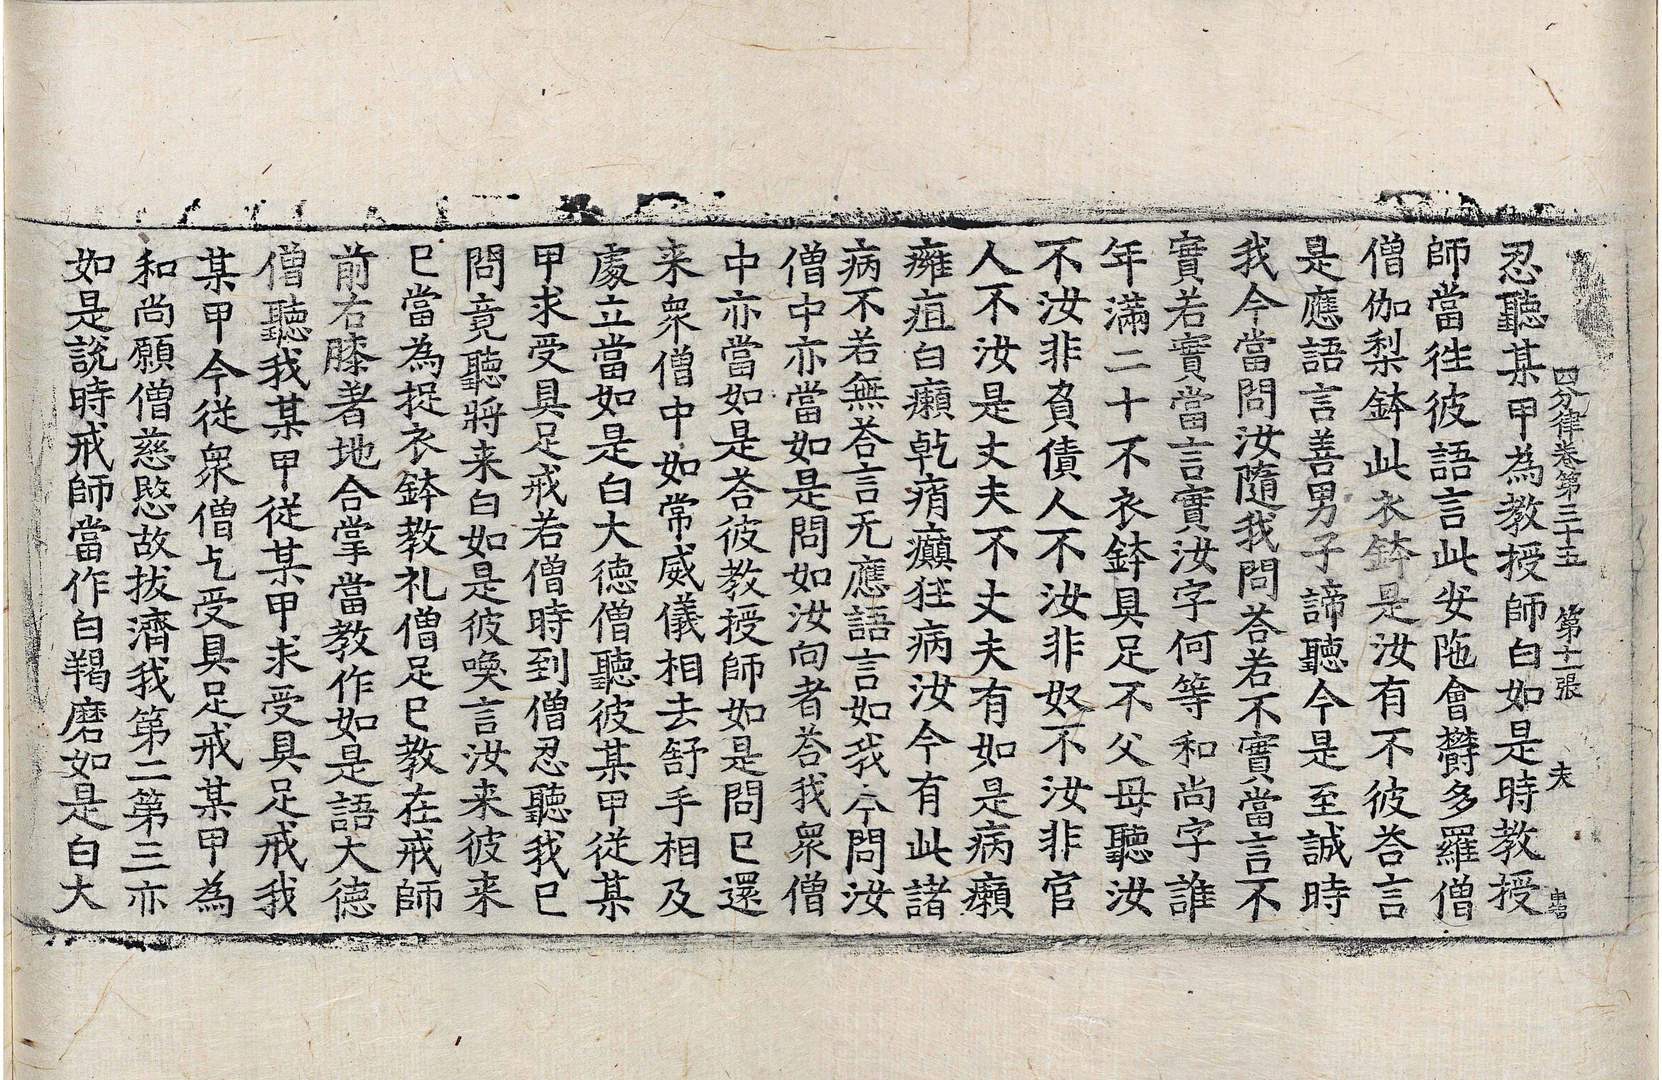 四分律卷第三十五 第十一張 夫
忍聽某甲為教授師白如是時教授
師當往彼語言此安陁會欝多羅僧
僧伽梨鉢此衣鉢是汝有不彼荅言
是應語言善男子諦聽今是至誠時
我今當問汝隨我問荅若不實當言不
實若實當言實汝字何等和尚字誰
年滿二十不衣鉢具足不父母聽汝
不汝非負債人不汝非奴不汝非官
人不汝是丈夫不丈夫有如是病癩
癰疽白癩乾痟癲狂病汝今有此諸
病不若無荅言无應語言如我今問汝
僧中亦當如是問如汝向者荅我衆僧
中亦當如是荅彼教授師如是問已還
来衆僧中如常威儀相去舒手相及
處立當如是白大德僧聽彼某甲從某
甲求受具足戒若僧時到僧忍聽我已
問竟聽將来白如是彼喚言汝来彼来
已當為捉衣鉢教礼僧足已教在戒師
前右膝著地合掌當教作如是語大德
僧聽我某甲從某甲求受具足戒我
某甲今從衆僧乞受具足戒某甲為
和尚願僧慈愍故拔濟我第二第三亦
如是說時戒師當作白羯磨如是白大